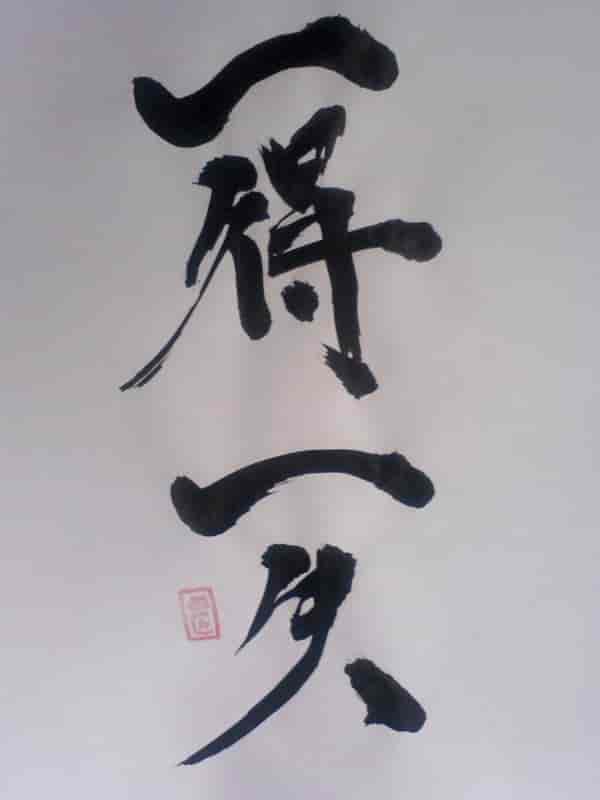 一得一失